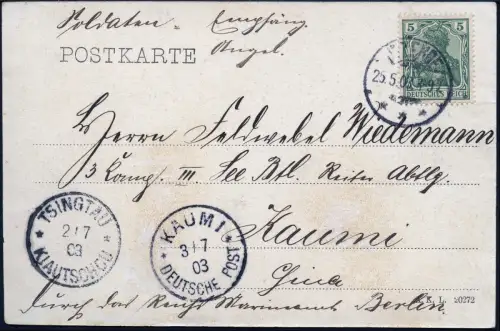 Soldaten- Empfäng.
POSTKARTE Angel.
5 5
DEUTSCHES REICH
25.5.0
Herrn Feldwebel Wiedemann
3 Komp. III See Btl. Reiter Abtlg.
Kaumi
China
durch das Reichs Marineamt Berlin
TSINGTAU
2/7
03
KIAUTSCHOU
KAUMI
3/7
03
DEUTSCHE POST
K. L. 20272